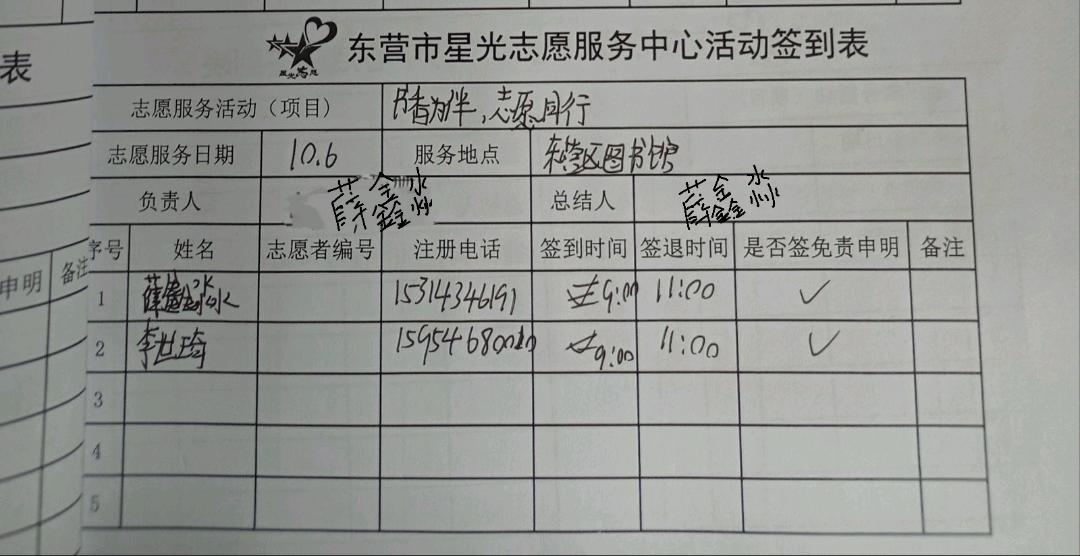 表
申明 备注
星光志愿
东营市星光志愿服务中心活动签到表
志愿服务活动（项目） 书香为伴，志愿同行
志愿服务日期 10.6 服务地点 东营区图书馆
负责人 薛鑫淼 总结人 薛鑫淼
序号 姓名 志愿者编号 注册电话 签到时间 签退时间 是否签免责申明 备注
1 15314346191 9:00 11:00 ✓
2 李世琦 9:00 11:00 ✓
3
4
5